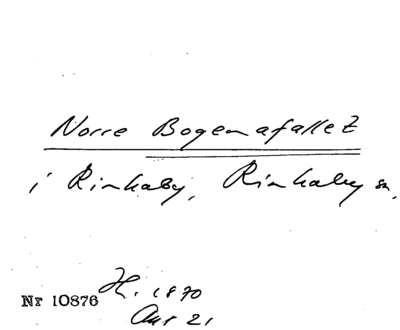 Norre Bogemafallet
i Rinkaby, Rinkaby sn,
Nr 10876 H. 1870
21